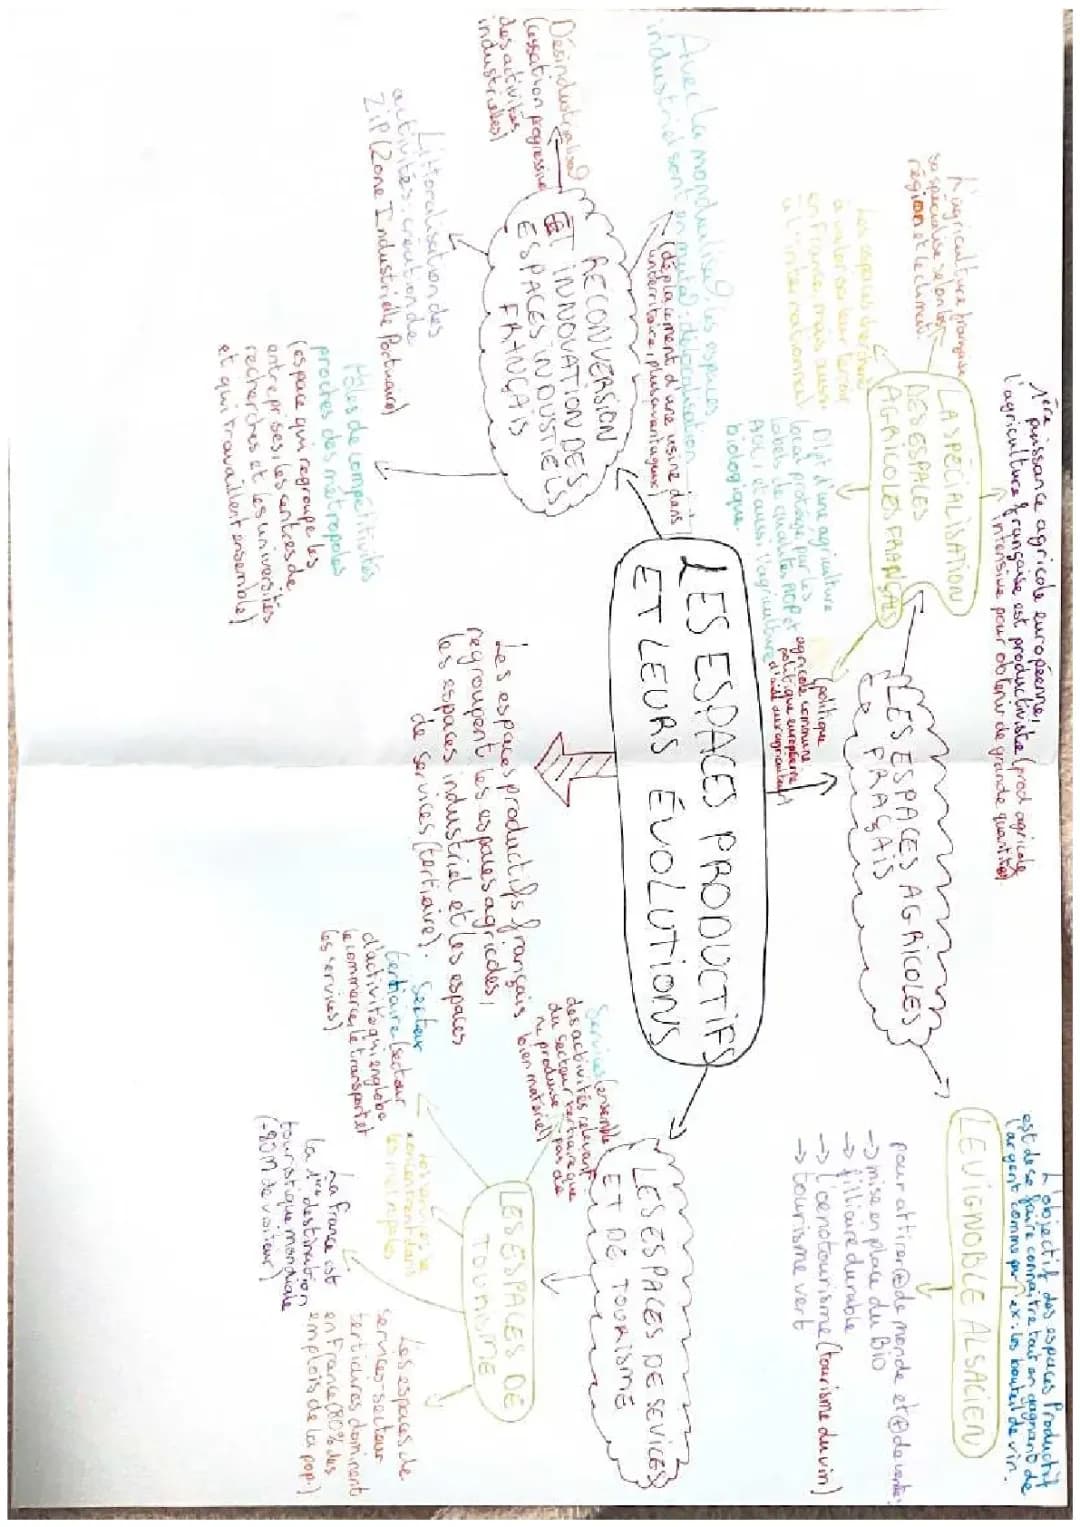 LES ESPACES PRODUCTIFS
ET LEURS ÉVOLUTIONS
Les espaces productifs français
regroupent les espaces agricoles,
les espaces industriel et les espaces
de services (tertiaire).
LES ESPACES AGRICOLES
FRAÇAIS
LA SPÉCIALISATION
DES ESPACES
AGRICOLES FRANÇAIS
1ère puissance agricole européenne,
l'agriculture française est productiviste (prod agricole
intensive pour obtenir de grande quantité)
L'agriculture française
se spécialise selon les
région et le climat
Les espaces cherchent
à valoriser leur terroir
en France, mais aussi
à l'international
Dvpt d'une agriculture
local protégé par les
labels de qualités AOP et
AOC, et aussi l'agriculture
biologique
(politique
agricole commune
politique européenne
d'aide aux agriculteurs)
LE VIGNOBLE ALSACIEN
L'objectif des espaces Productif
est de se faire connaître tout en gagnant de
l'argent comme par ex: les bouteil de vin.
pour attirer ⊕ de monde et ⊕ de ventes
-> mise en place du BIO
-> filliaire durable
-> L'oenotourisme (tourisme du vin)
-> tourisme vert
RECONVERSION
ET INNOVATION DES
ESPACES INDUSTIELS
FRANÇAIS
Avec la mondialisa°, les espaces
industriel sont en muta°: délocalisation
(déplacement d'une usine dans
un territoire, plus avantageux)
Désindustrialisa°
(cessation progressive
des activités
industrielles)
Littoralisation des
activités: création de
ZIP (Zone Industrielle Portuaire)
Pôles de compétitivités
proches des métropoles
(espace qui regroupe les
entreprises, les centres de
recherches et les universités
et qui travaillent ensemble)
LES ESPACES DE SEVICES
ET DE TOURISME
Services (ensemble
des activités relevant
du secteur tertiaire que
ne produise pas de
bien matériel)
LES ESPACES DE
TOURISME
Secteur
tertiaire (secteur
d'activité qui englobe
le commerce, le transport et
les services)
Les services se
concentrent dans
les métropoles
La France est
la 1ère destination
touristique mondiale
(-90M de visiteur)
Les espaces de
services-secteur
tertiaires dominent
en France (80% des
emplois de la pop.)